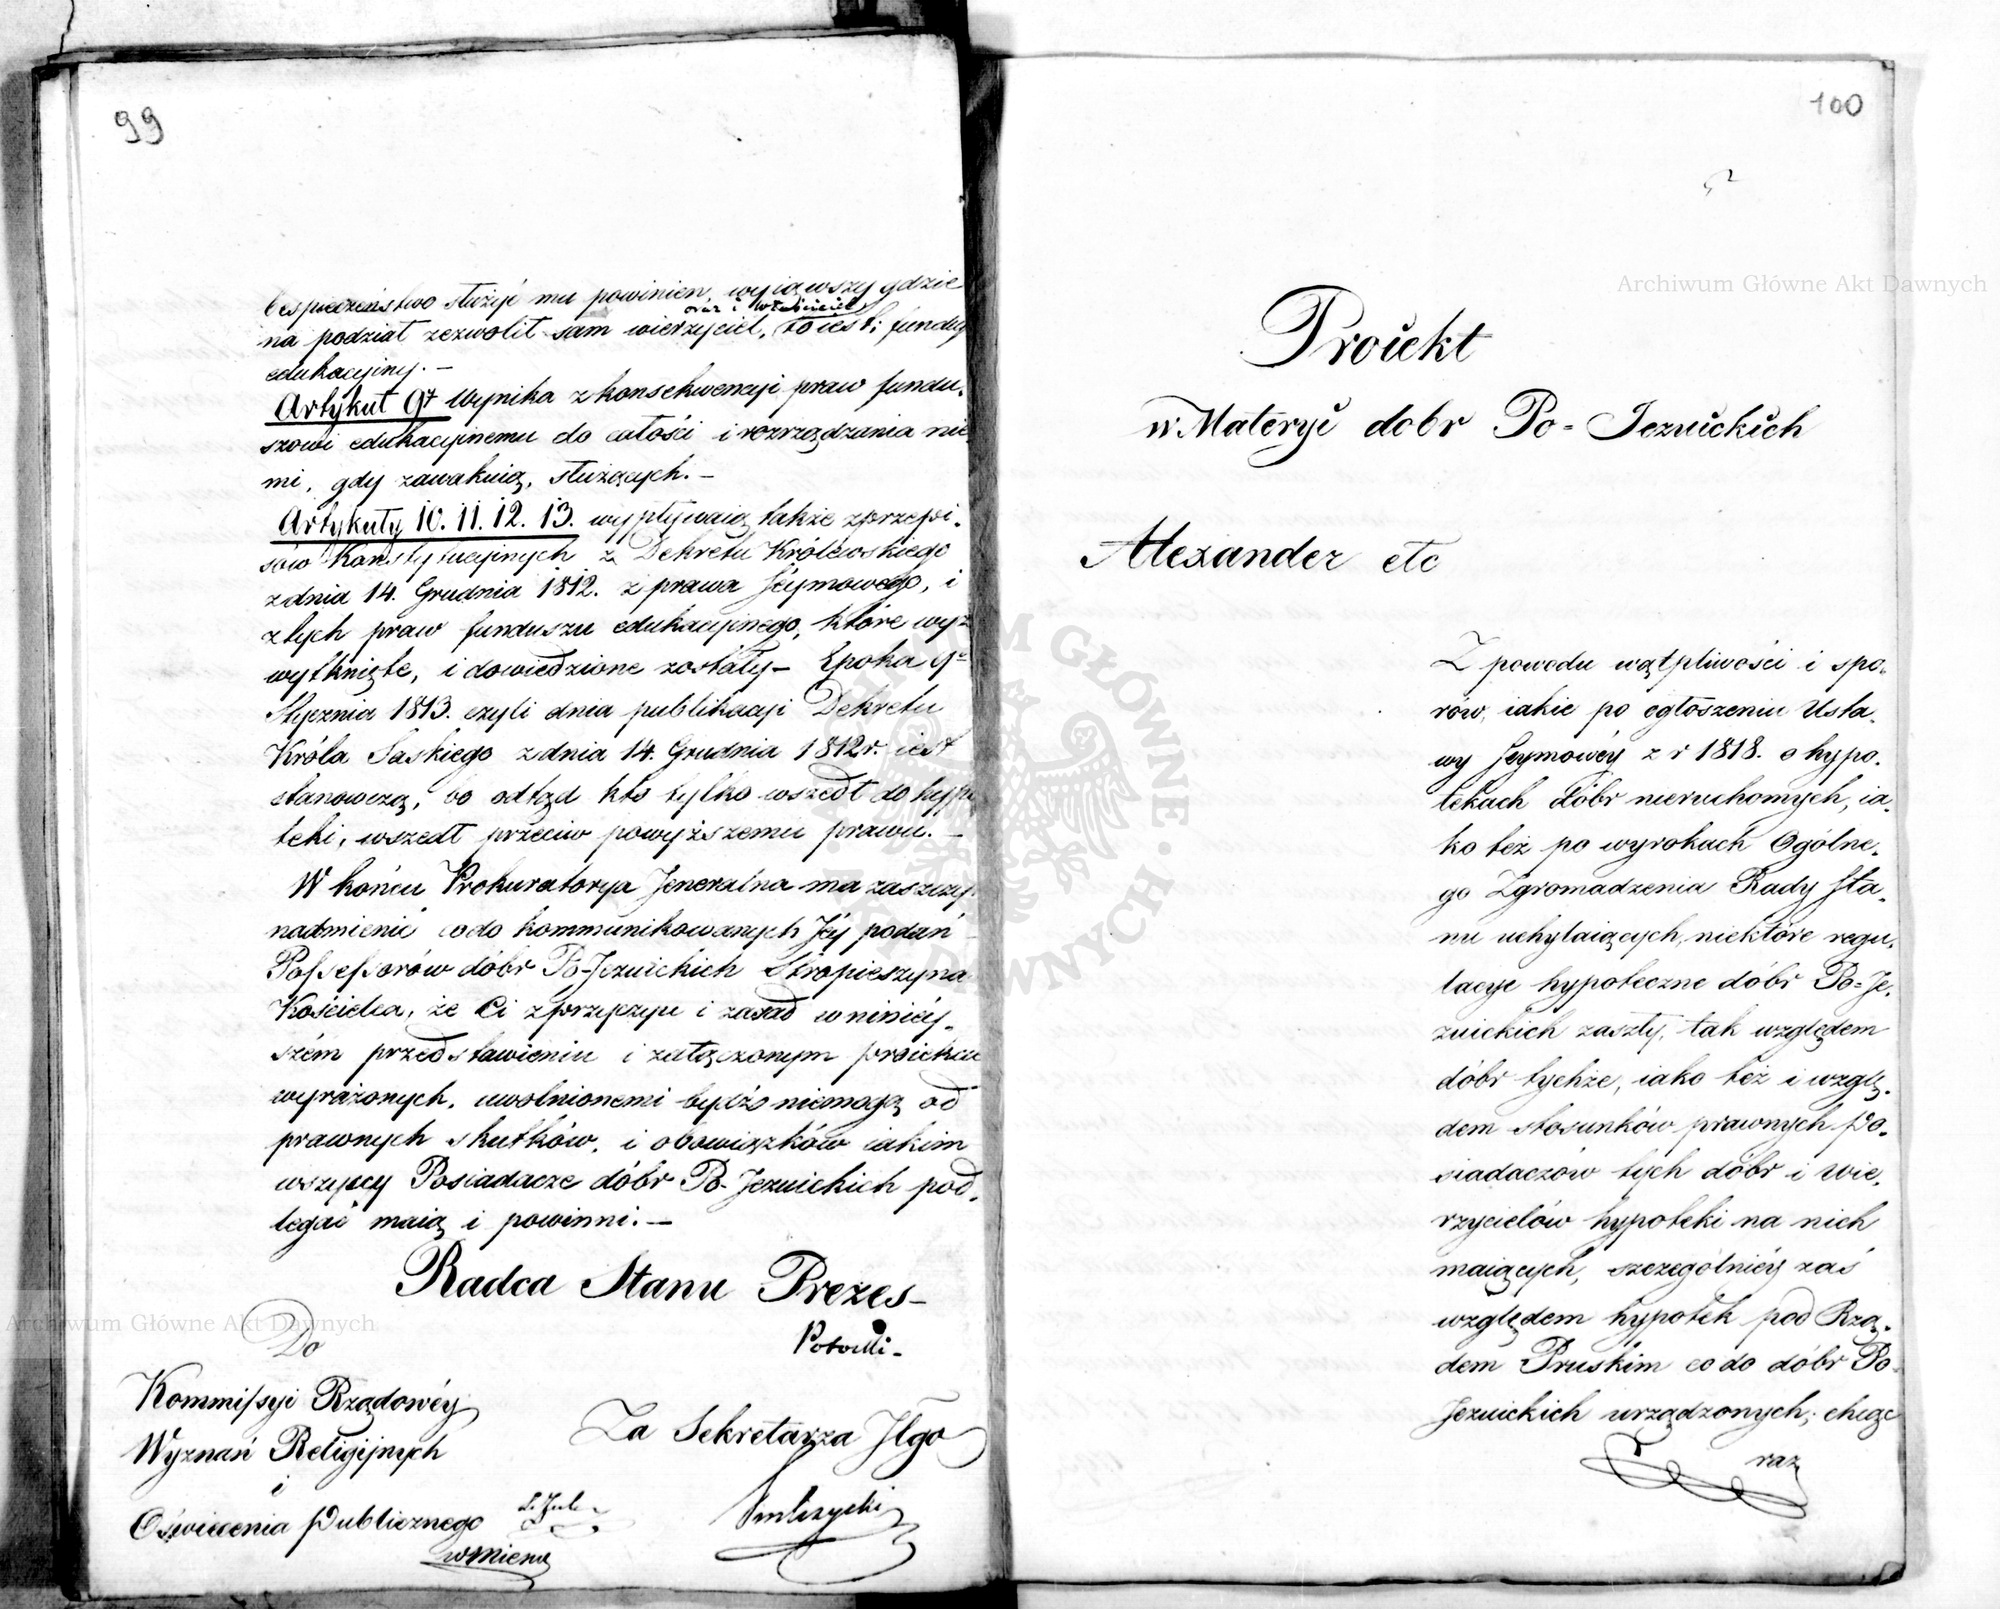 99
bespieczeństwo służyć mu powinien, wyiąwszy gdzie
oraz i właściciel
na podział zezwolił sam wierzyciel, to iest; fundusz
edukacyiny. –
Artykuł 9ty Wynika z konsekwencyi praw fundu-
szowi edukacyinemu do całości i rozrządzania nie-
mi, gdy zawakuią, służących. –
Artykuły 10. 11. 12. 13. wypływaią także z przepi-
sów Konstytucyinych z Dekretu Królewskiego
z dnia 14. Grudnia 1812. z prawa Seymowego, i
z tych praw funduszu edukacyinego, które wyż
wytknięte, i dowiedzione zostały – Epoka 9go
Stycznia 1813. czyli dnia publikacyi Dekretu
Króla Saskiego z dnia 14. Grudnia 1812r. iest
stanowczą, bo odtąd kto tylko wszedł do hypo
teki, wszedł przeciw powyższemu prawu. –
W końcu Prokuratorya Jeneralna ma zaszczyt
nadmienić co do kommunikowanych Jéy podań
Possessorów dóbr Po-Jezuickich Stropieszyna
Kościelca, że Ci z przyczyn i zasad w niniéy-
szém przedstawieniu i załączonym proiekcie
wyrażonych, uwolnionemi bydź niemogą od
prawnych skutków, i obowiązków iakim
wszyscy Posiadacze dóbr Po-Jezuickich pod-
legać maią i powinni. –
Radca Stanu Prezes –
Do
Kommissyi Rządowéy
Wyznań Religijnych
i
Oświecenia Publicznego
w mieniu
Za Sekretarza Jlgo
100
Proiekt
w Materyi dobr Po-Jezuickich
Alexander etc
Z powodu wątpliwości i spo-
rów, iakie po ogłoszeniu Usta-
wy Seymowéy z r 1818. o hypo-
tekach dóbr nieruchomych, ia-
ko też po wyrokach Ogólne-
go Zgromadzenia Rady Sta-
nu uchylaiących niektóre regu-
lacye hypoteczne dóbr Po-Je-
zuickich zaszły, tak względem
dóbr tychże, iako też i wzglę-
dem stosunków prawnych Po-
siadaczów tych dóbr i Wie-
rzycielów hypoteki na nich
maiących, szczególniéy zaś
względem hypotek pod Rzą-
dem Pruskim co do dóbr Po-
Jezuickich urządzonych; chcąc
raz
Archiwum Główne Akt Dawnych
Archiwum Główne Akt Dawnych
ARCHIWUM GŁÓWNE AKT DAWNYCH